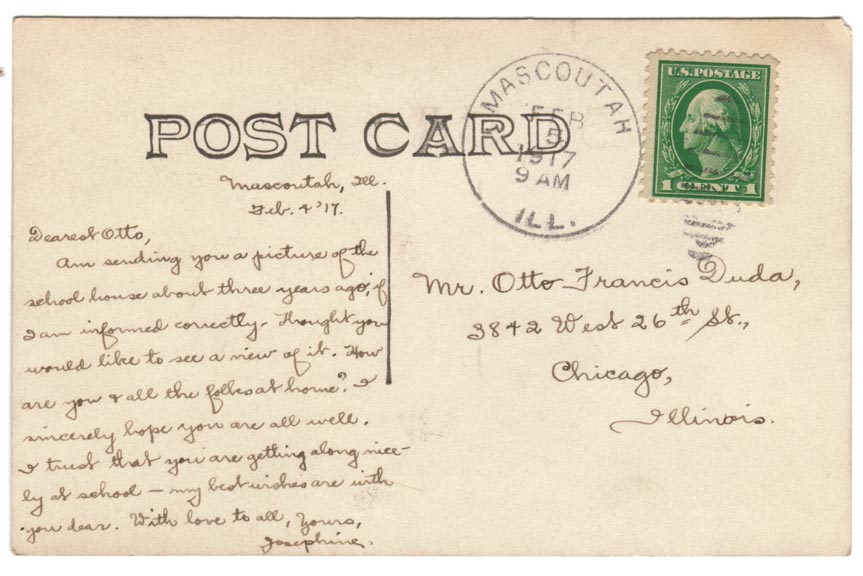 POST CARD
MASCOUTAH
FEB
5
1917
9 AM
ILL.
U.S. POSTAGE
1 CENT 1
Mascoutah, Ill.
Feb. 4 '17.
Dearest Otto,
Am sending you a picture of the
school house about three years ago, if
I am informed correctly. Thought you
would like to see a view of it. How
are you & all the folks at home? I
sincerely hope you are all well.
I trust that you are getting along nice-
ly at school — my best wishes are with
you dear. With love to all, Yours,
Josephine.
Mr. Otto Francis Duda,
3842 West 26th St.,
Chicago,
Illinois.